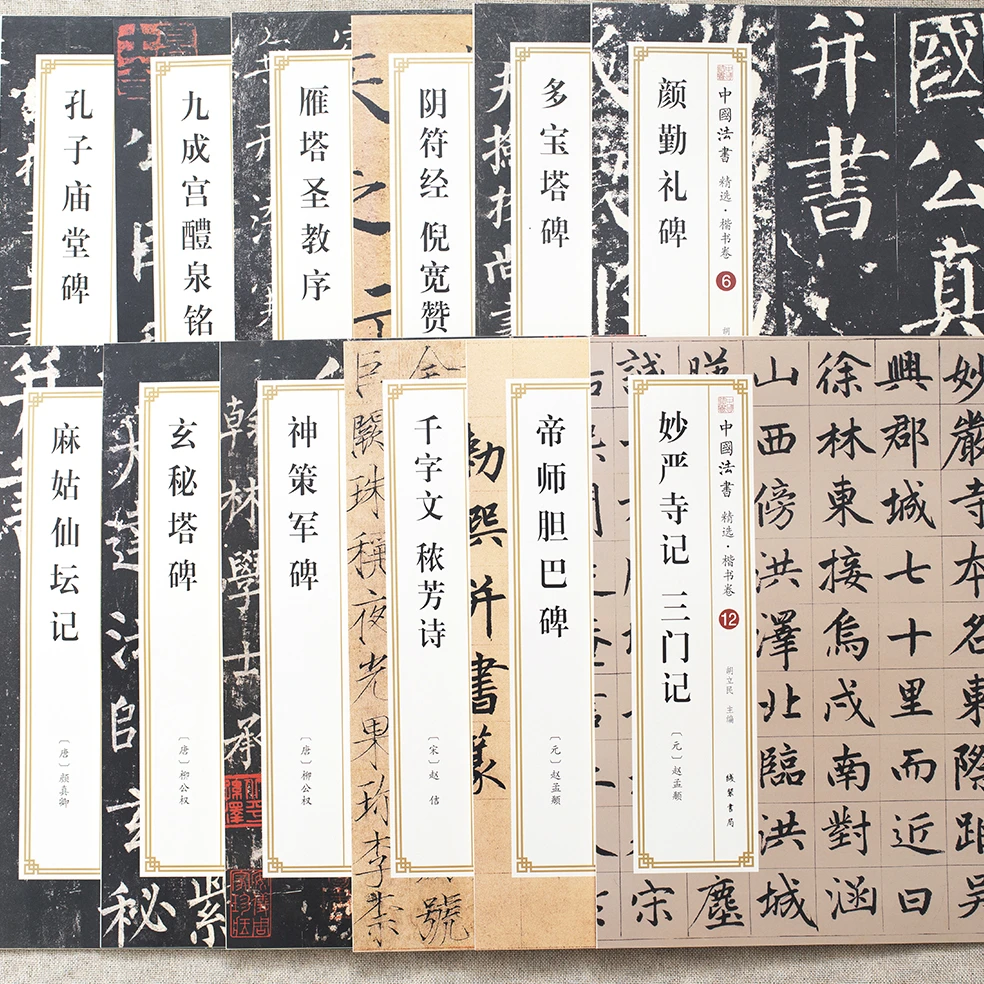 孔子庙堂碑
九成宫醴泉铭
雁塔圣教序
阴符经 倪宽赞
多宝塔碑
颜勤礼碑
中國法書 精选·楷书卷 6
胡
國公真
并書
麻姑仙坛记
〔唐〕颜真卿
玄秘塔碑
〔唐〕柳公权
神策军碑
〔唐〕柳公权
千字文 秾芳诗
〔宋〕赵佶
帝师胆巴碑
〔元〕赵孟頫
妙严寺记 三门记
〔元〕赵孟頫
中國法書 精选·楷书卷 12
胡立民 主编
线装书局
妙嚴寺本名東際距吴
興郡城七十里而近曰
徐林東接烏戍南對涵
山西傍洪澤北臨洪城
塵
宋
勅熙并書篆
珠稱夜光果珍李柰
號
翰林學士承
達法師玄秘
紫